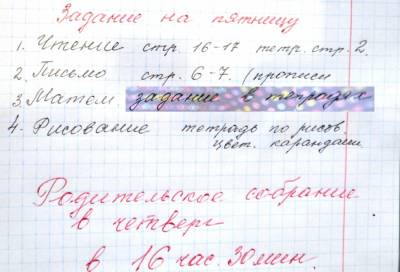 Задание на пятницу
1. Чтение стр. 16-17 тетр. стр. 2.
2. Письмо стр. 6-7. (прописи
3. Матем. задание в тетрадях
4. Рисование тетрадь по рисов.
цвет. карандаши
Родительское собрание
в четверг
в 16 час. 30 мин.